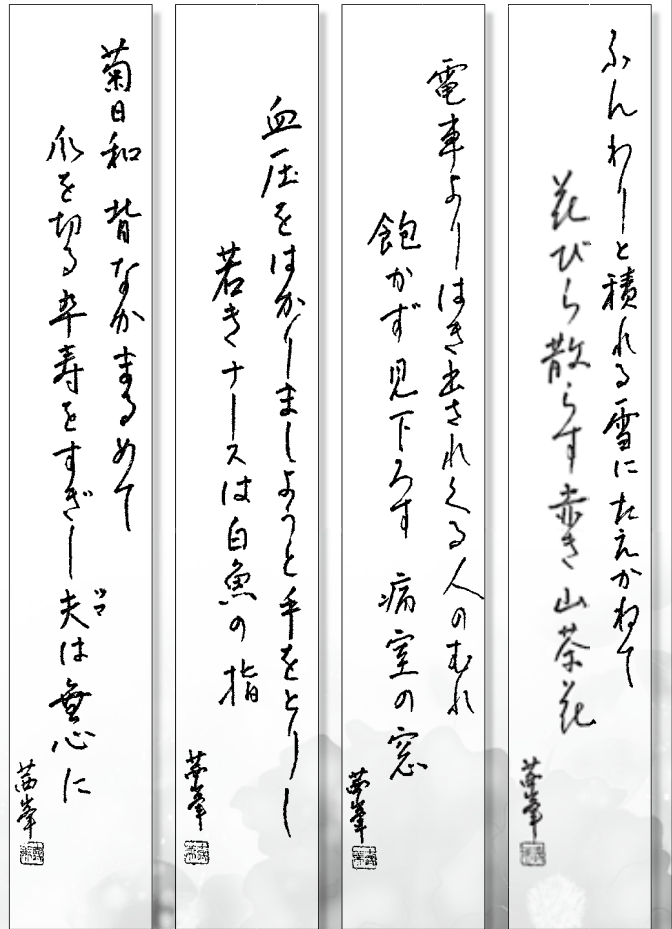 ふんわりーと積れる雪にたえかねて
花びら散らす赤き山茶花
電車よりはき出されくる人のむれ
飽かず見下ろす 病室の窓
血圧をはかりましようと手をとりし
若きナースは白魚の指
菊日和 背なかまるめて
爪を切る卒寿をすぎし夫は無心に
ツマ